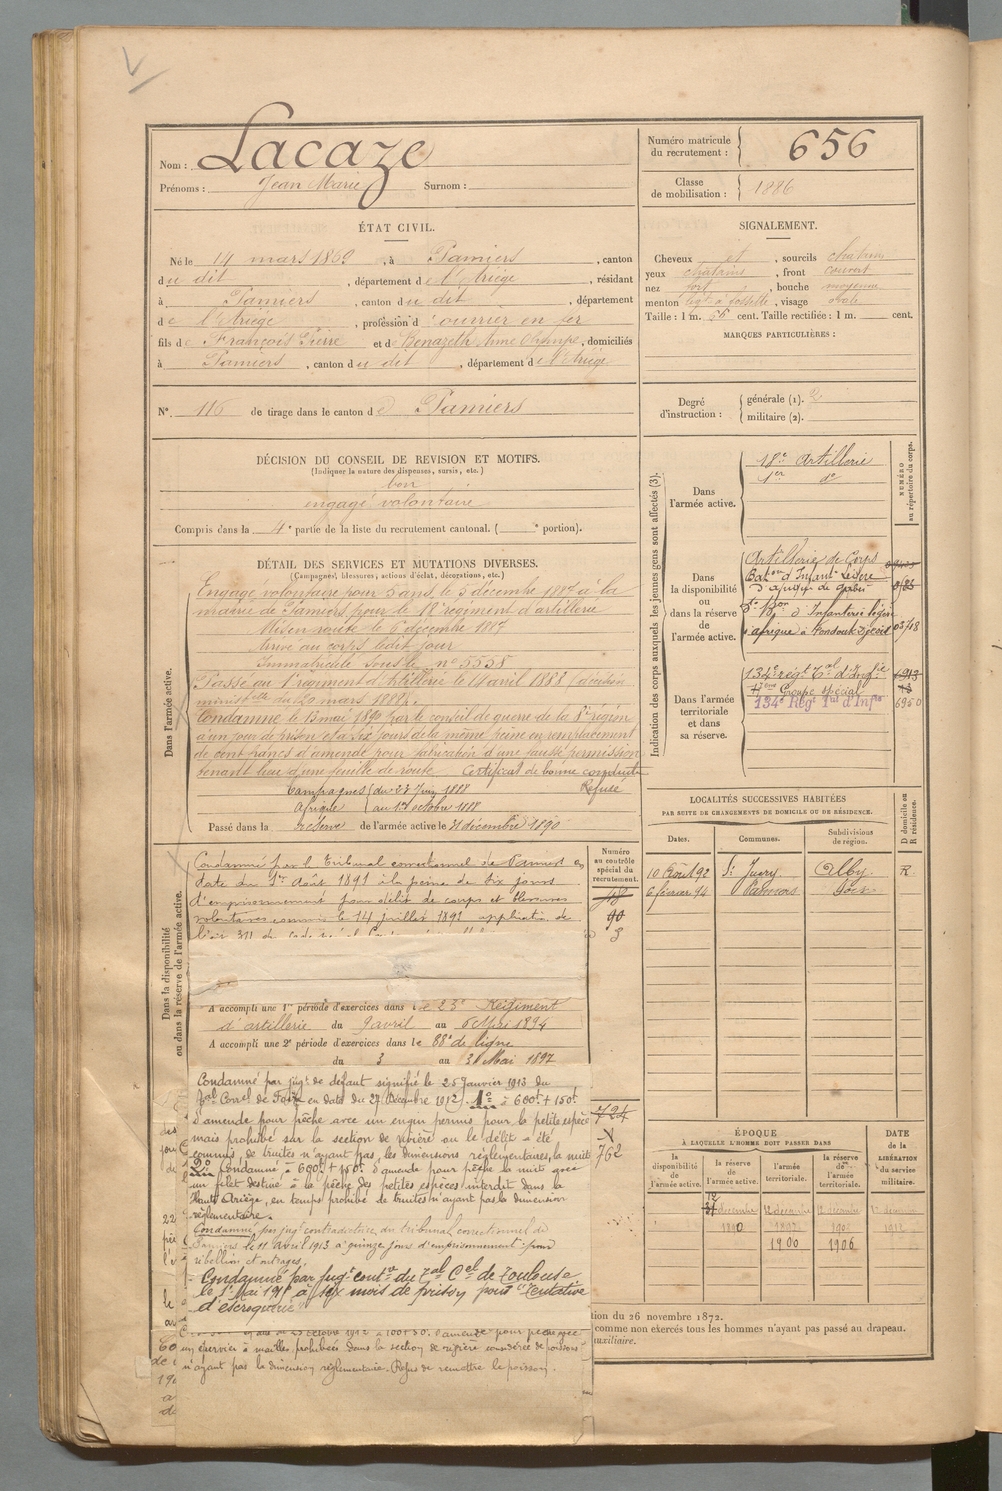 Nom : Lacaze
Prénoms : Jean Marie Surnom :
Numéro matricule du recrutement : 656
Classe de mobilisation : 1886
ÉTAT CIVIL.
Né le 14 mars 1869, à Pamiers, canton
du dit, département de l'Ariège, résidant
à Pamiers, canton du dit, département
de l'Ariège, profession d'ouvrier en fer
fils de François Pierre et de Benazeth Anne Olympe, domiciliés
à Pamiers, canton du dit, département de l'Ariège.
N° 116 de tirage dans le canton de Pamiers
SIGNALEMENT.
Cheveux et, sourcils chatains
yeux chatains, front couvert
nez fort, bouche moyenne
menton à fossette, visage ovale
Taille : 1 m. 66 cent. Taille rectifiée : 1 m. cent.
MARQUES PARTICULIÈRES :
Degré d'instruction : générale (1). 2
militaire (2).
DÉCISION DU CONSEIL DE REVISION ET MOTIFS.
(Indiquer la nature des dispenses, sursis, etc.)
bon
engagé volontaire
Compris dans la 4e partie de la liste du recrutement cantonal. ( e portion).
DÉTAIL DES SERVICES ET MUTATIONS DIVERSES.
(Campagnes, blessures, actions d'éclat, décorations, etc.)
Dans l'armée active.
Engagé volontaire pour 5 ans, le 5 décembre 1887 à la
mairie de Pamiers, pour le 18e régiment d'artillerie
Mis en route le 6 décembre 1887
Arrivé au corps ledit jour
Immatriculé sous le n° 5558
Passé au 1er régiment d'Artillerie le 4 avril 1888 (décision
ministelle du 20 mars 1888).
Condamné le 13 mai 1890 par le conseil de guerre de la 8e région
à un jour de prison et à six jours de la même peine en remplacement
de cent francs d'amende pour fabrication d'une fausse permission
tenant lieu d'une feuille de route. Certificat de bonne conduite
Refusé
Campagnes du 27 Juin 1888
Afrique au 1er octobre 1888
Passé dans la réserve de l'armée active le 31 décembre 1890
Dans la disponibilité ou dans la réserve de l'armée active.
Condamné par le tribunal correctionnel de Pamiers en
date du 1er Août 1891 à la peine de dix jours
d'emprisonnement pour délit de coups et blessures
volontaires commis le 14 juillet 1891 application de
l'art 311 du code
A accompli une 1re période d'exercices dans le 23e Régiment
d'artillerie du 9 avril au 6 Mai 1894
A accompli une 2e période d'exercices dans le 88e de ligne
du 3 au 30 Mai 1897
Condamné par jugt de défaut signifié le 25 Janvier 1913 du
Tal Correl de Foix en date du 27 Décembre 1912. 1° à 600f + 150f
d'amende pour pêche avec un engin permis pour la petite espèce
mais prohibé sur la section de rivière ou le délit a été
commis, de truites n'ayant pas les dimensions réglementaires, la nuit
2° Condamné à 600f + 150f d'amende pour pêche la nuit avec
un filet destiné à la pêche des petites espèces interdit dans la
Haute Ariège, en temps prohibé de truites n'ayant pas la dimension
réglementaire.
Condamné par jugt contradictoire du tribunal correctionnel de
Pamiers le 11 avril 1913 à quinze jours d'emprisonnement pour
rébellion et outrages.
Condamné par Jugt contre du Tal Cel de Toulouse
à six mois de prison pour Tentative
d'escroquerie
octobre 1912 à 100 + 50f d'amende pour pêche avec
un épervier à mailles prohibées dans la section de rivière considérée de poissons
n'ayant pas la dimension réglementaire. Refus de remettre le poisson.
Numéro au contrôle spécial du recrutement.
90
3
724
762
Indication des corps auxquels les jeunes gens sont affectés (3).
NUMÉRO au répertoire du corps.
Dans l'armée active.
18e Artillerie
1er do
Dans la disponibilité ou dans la réserve de l'armée active.
Artillerie de Corps
Baton d'Infantie Légère
d'Afrique
Bon d'Infanterie légère
d'afrique
03718
Dans l'armée territoriale et dans sa réserve.
134e régt Tal d'Infie
Groupe spécial
134e Régt Tal d'Infie
6950
LOCALITÉS SUCCESSIVES HABITÉES
PAR SUITE DE CHANGEMENTS DE DOMICILE OU DE RÉSIDENCE.
Dates. Communes. Subdivisions de région. D domicile ou R résidence.
10 92 St Juéry Alby R.
6 février 94 Pamiers Foix
ÉPOQUE
À LAQUELLE L'HOMME DOIT PASSER DANS
la disponibilité de l'armée active. la réserve de l'armée active. l'armée territoriale. la réserve de l'armée territoriale.
DATE de la LIBÉRATION du service militaire.
31 décembre 12 décembre 12 décembre 12 décembre
1890 1897
1900 1906
tion du 26 novembre 1872.
comme non exercés tous les hommes n'ayant pas passé au drapeau.
auxiliaire.